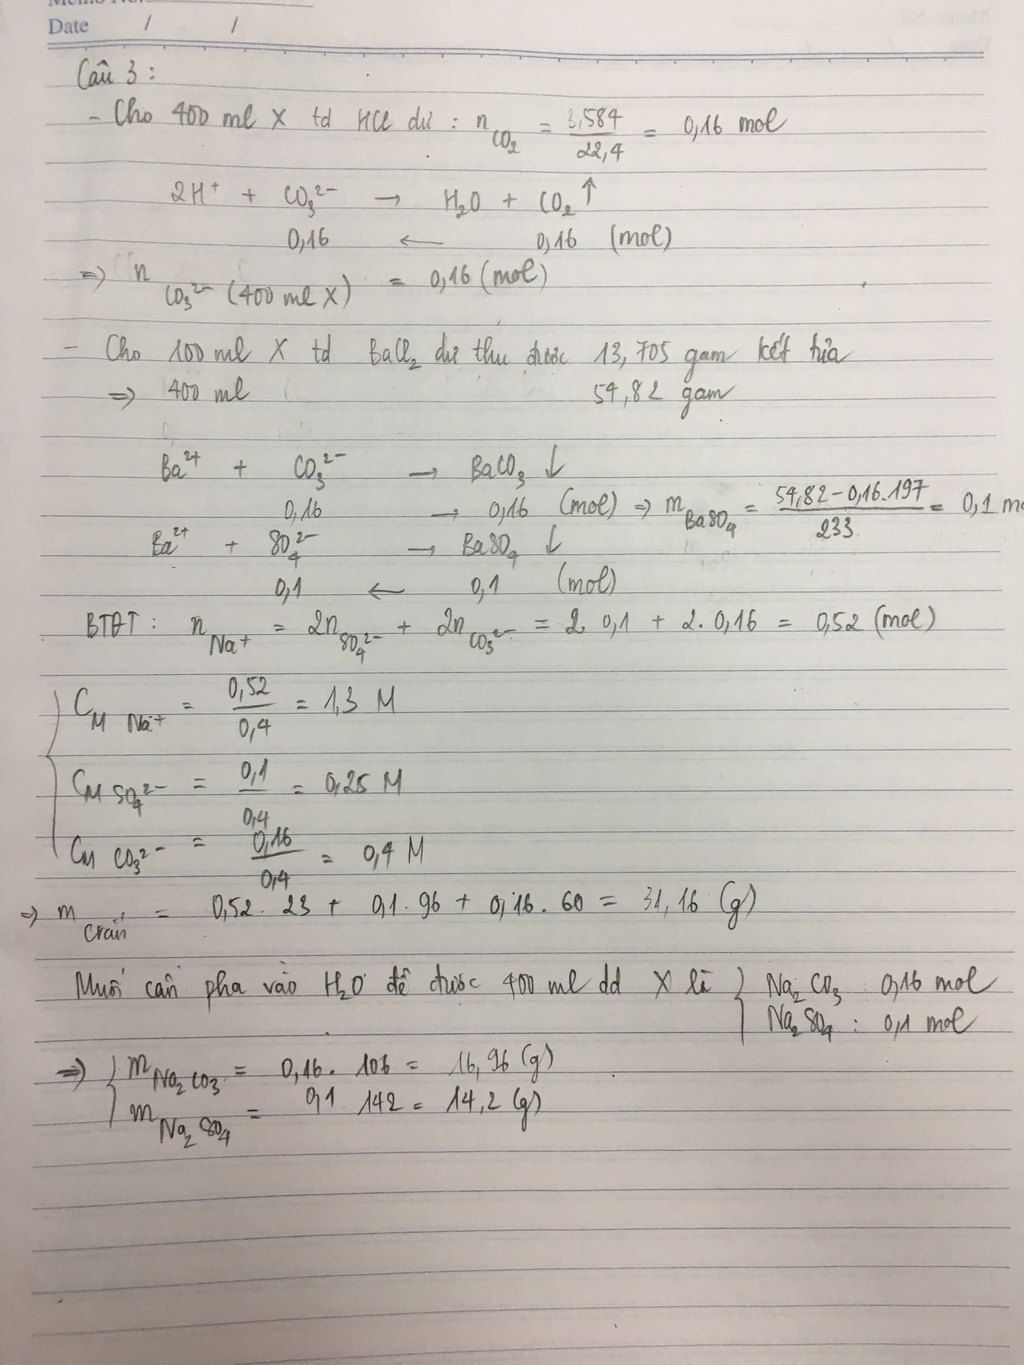 Date / /
Câu 3 :
- Cho 400 ml X td HCl dư : n CO₂ = 3,584 / 22,4 = 0,16 mol
2H⁺ + CO₃²⁻ → H₂O + CO₂ ↑
0,16 ← 0,16 (mol)
=> n CO₃²⁻ (400 ml X) = 0,16 (mol)
- Cho 100 ml X td BaCl₂ dư thu được 13,705 gam kết tủa
=> 400 ml 54,82 gam
Ba²⁺ + CO₃²⁻ → BaCO₃ ↓
0,16 → 0,16 (mol) => m BaSO₄ = 54,82 - 0,16.197 / 233 = 0,1 mo
Ba²⁺ + SO₄²⁻ → BaSO₄ ↓
0,1 ← 0,1 (mol)
BTĐT : n Na⁺ = 2n SO₄²⁻ + 2n CO₃²⁻ = 2. 0,1 + 2. 0,16 = 0,52 (mol)
C M Na⁺ = 0,52 / 0,4 = 1,3 M
C M SO₄²⁻ = 0,1 / 0,4 = 0,25 M
C M CO₃²⁻ = 0,16 / 0,4 = 0,4 M
=> m crắn = 0,52. 23 + 0,1. 96 + 0,16. 60 = 31,16 (g)
Muối cần pha vào H₂O để được 400 ml dd X là { Na₂CO₃ : 0,16 mol
Na₂SO₄ : 0,1 mol
=> { m Na₂CO₃ = 0,16. 106 = 16,96 (g)
m Na₂SO₄ = 0,1 . 142 = 14,2 (g)